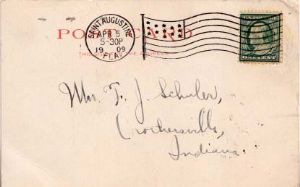 POST CARD
SAINT AUGUSTINE
APR 5
5-30P
1909
FLA.
Mr. T. J. Schuler,
Crothersville,
Indiana